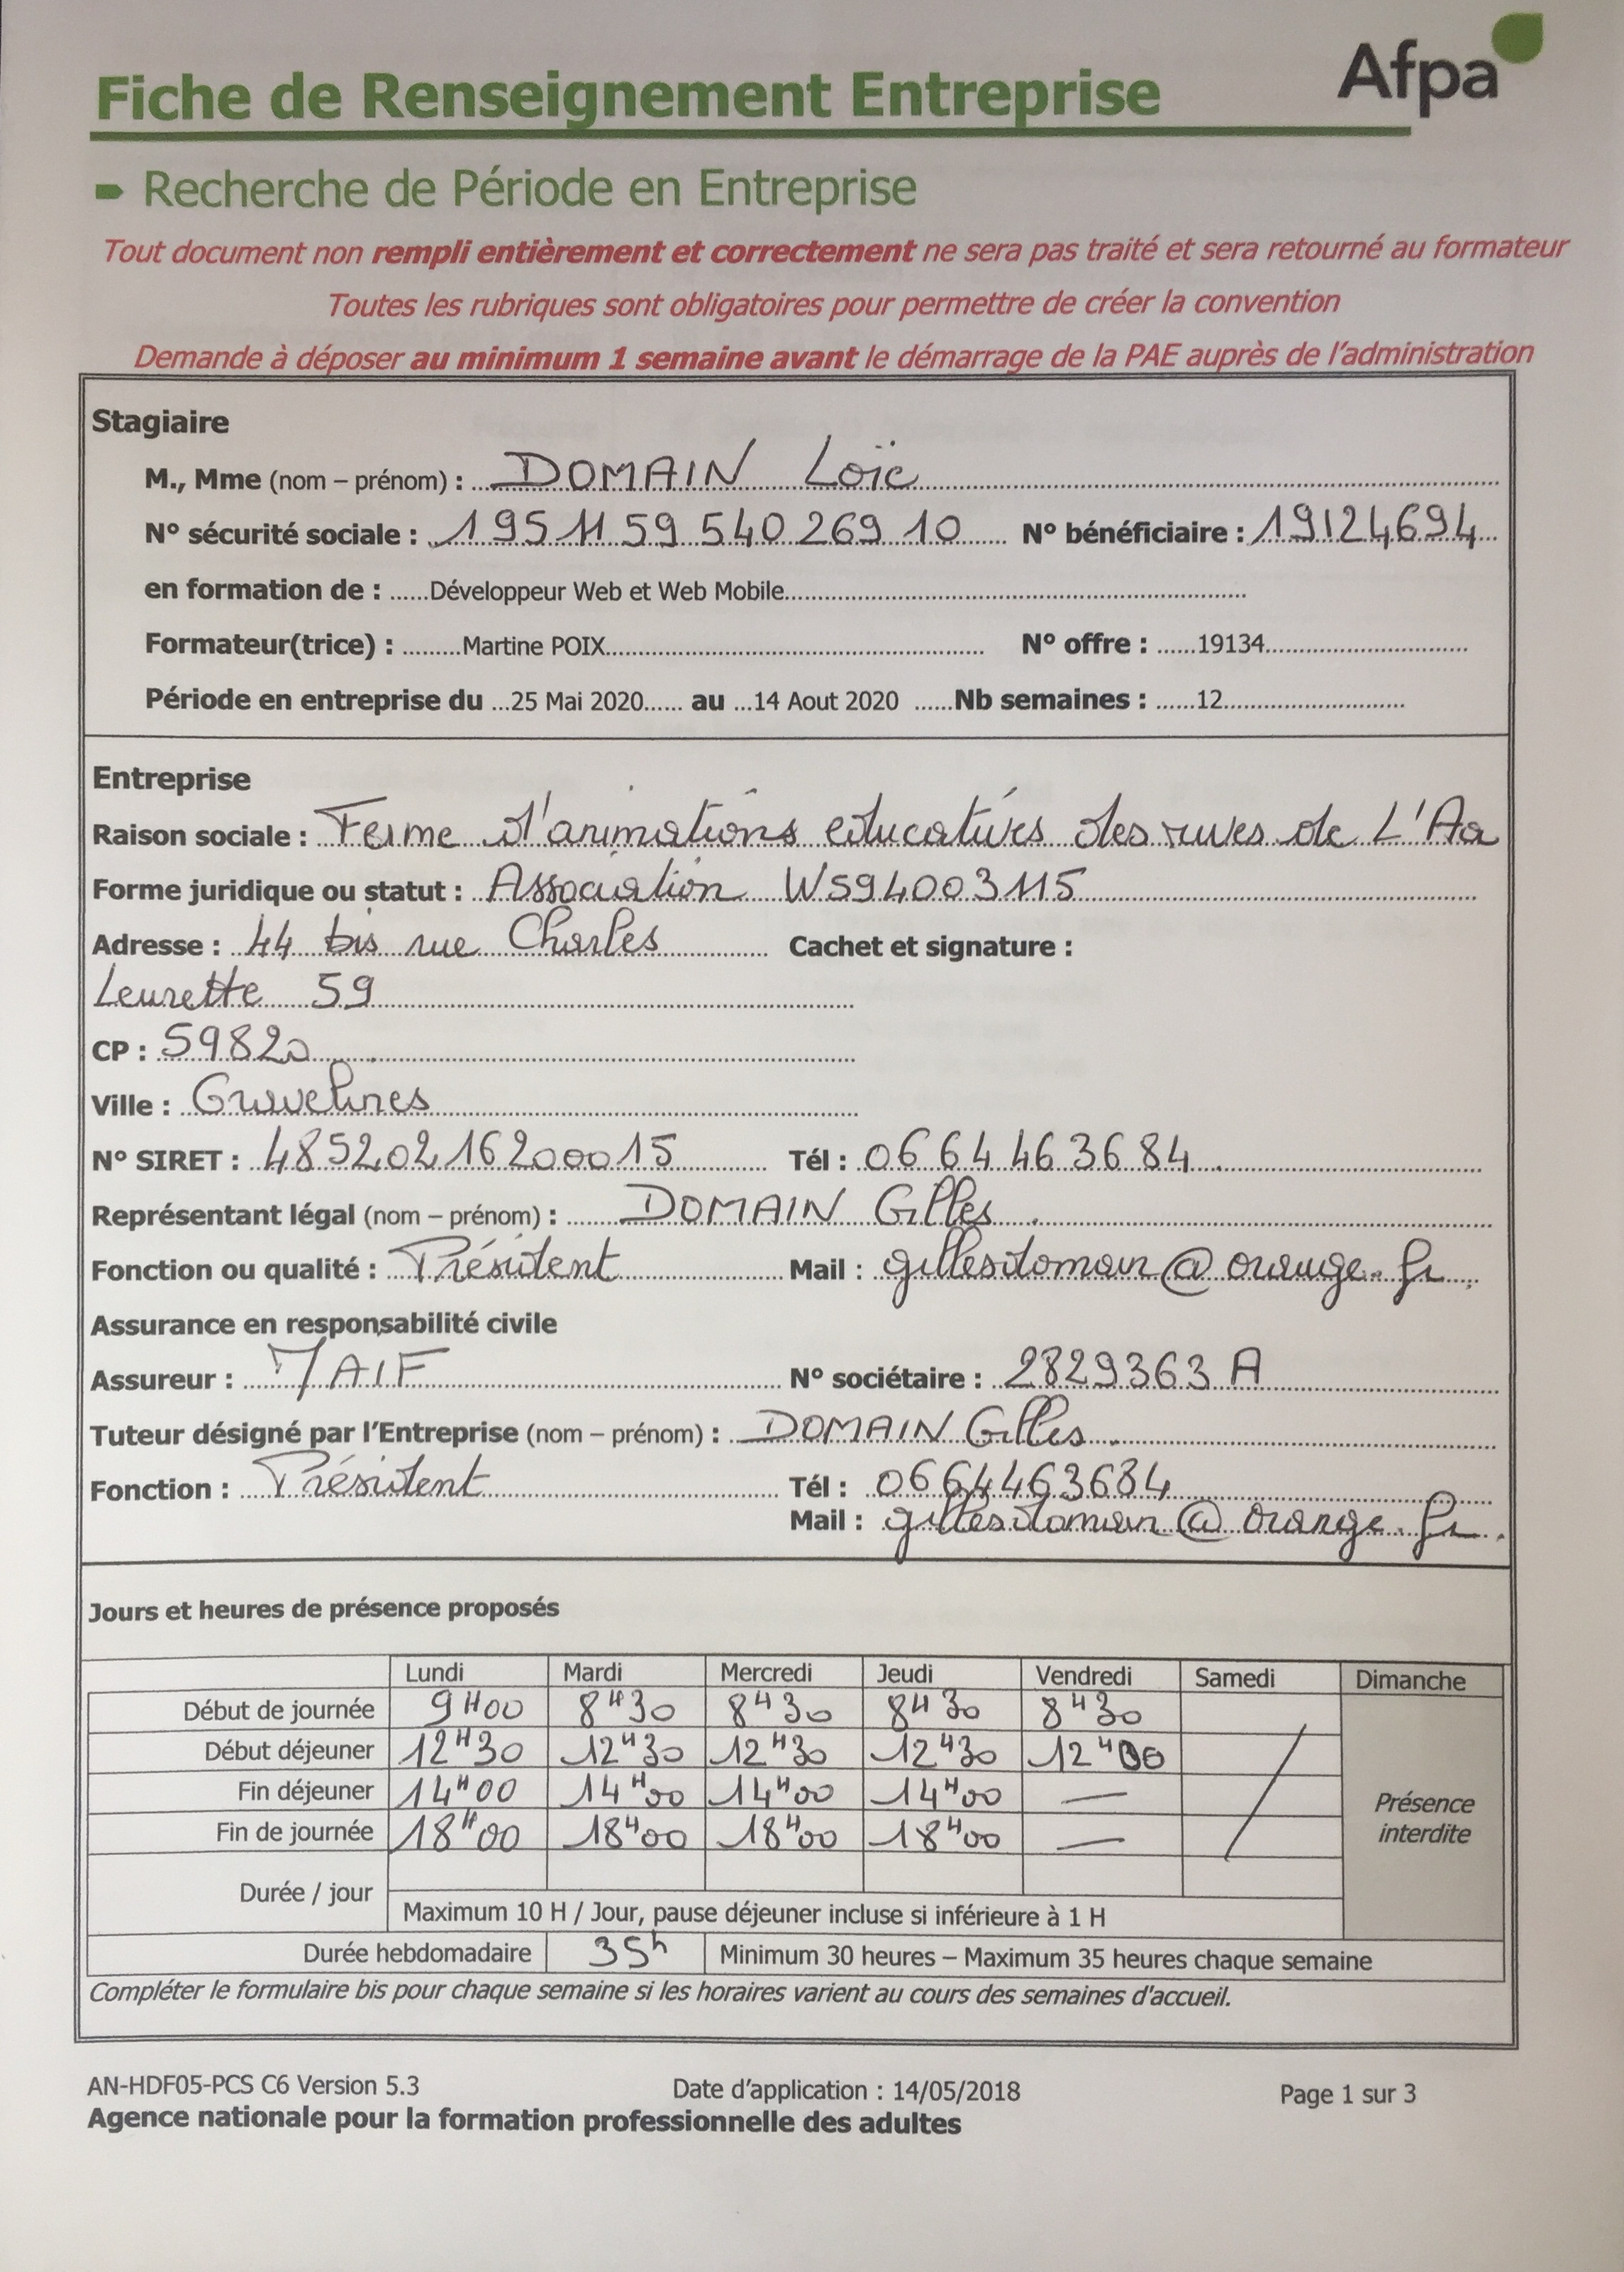 Afpa
Fiche de Renseignement Entreprise
Recherche de Période en Entreprise
Tout document non rempli entièrement et correctement ne sera pas traité et sera retourné au formateur
Toutes les rubriques sont obligatoires pour permettre de créer la convention
Demande à déposer au minimum 1 semaine avant le démarrage de la PAE auprès de l'administration
Stagiaire
M., Mme (nom – prénom) : DOMAIN Loïc
N° sécurité sociale : 1 95 11 59 540 269 10 N° bénéficiaire : 19124694
en formation de : ......Développeur Web et Web Mobile
Formateur(trice) : .........Martine POIX N° offre : ......19134
Période en entreprise du ...25 Mai 2020...... au ...14 Aout 2020 ......Nb semaines : ......12
Entreprise
Raison sociale : Ferme d'animations educatives des rives de L'Aa
Forme juridique ou statut : Association W594003115
Adresse : 44 bis rue Charles Cachet et signature :
Leurette 59
CP : 59820
Ville : Gravelines
N° SIRET : 48520216200015 Tél : 06 64 46 36 84
Représentant légal (nom – prénom) : DOMAIN Gilles
Fonction ou qualité : Président Mail : gillesdomain@orange.fr
Assurance en responsabilité civile
Assureur : MAIF N° sociétaire : 2829363 A
Tuteur désigné par l'Entreprise (nom – prénom) : DOMAIN Gilles
Fonction : Président Tél : 0664463684
Mail : gillesdomain@orange.fr
Jours et heures de présence proposés
Lundi Mardi Mercredi Jeudi Vendredi Samedi Dimanche
Début de journée 9H00 8H30 8H30 8H30 8H30
Début déjeuner 12H30 12H30 12H30 12H30 12H00
Fin déjeuner 14H00 14H00 14H00 14H00 —
Présence interdite
Fin de journée 18H00 18H00 18H00 18H00 —
Durée / jour
Maximum 10 H / Jour, pause déjeuner incluse si inférieure à 1 H
Durée hebdomadaire 35h Minimum 30 heures – Maximum 35 heures chaque semaine
Compléter le formulaire bis pour chaque semaine si les horaires varient au cours des semaines d'accueil.
AN-HDF05-PCS C6 Version 5.3 Date d'application : 14/05/2018 Page 1 sur 3
Agence nationale pour la formation professionnelle des adultes